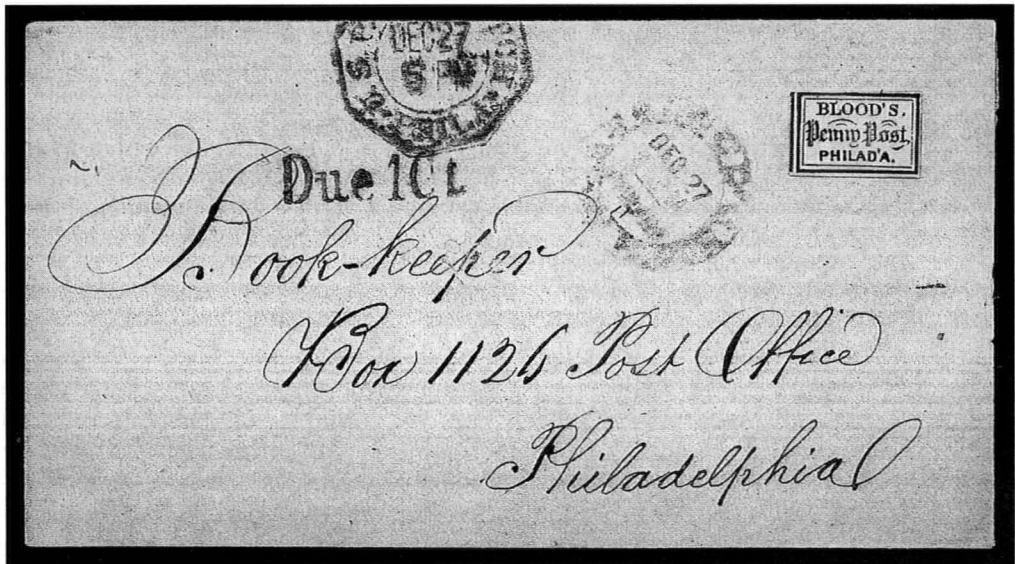 DEC 27
PHILA.
BLOOD'S.
Penny Post,
PHILAD'A.
DEC. 27
Due 1Ct
Book-keeper
Box 1126 Post Office
Philadelphia